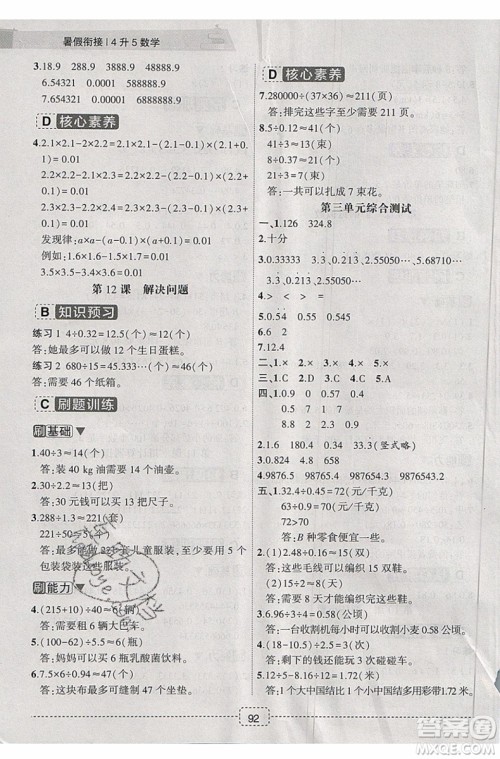 暑假衔接 | 4升5数学
3.18.9 288.9 4388.9 48888.9
6.54321 0.654321 6888888.9
7.654321 0.7654321
D 核心素养
4.2.1×2.1-2×2.2=2.1×2.1-(2.1-0.1)×(2.1+0.1)=0.01
2.2×2.2-2.1×2.3=2.2×2.2-(2.2-0.1)×(2.2+0.1)=0.01
2.7×2.7-2.6×2.8=2.7×2.7-(2.7-0.1)×(2.7+0.1)=0.01
发现规律:a×a-(a-0.1)×(a+0.1)=0.01
例如:1.6×1.6-1.5×1.7=0.01
3.5×3.5-3.4×3.6=0.01
第12课 解决问题
B 知识预习
练习1 4÷0.32=12.5(个)≈12(个)
答:她最多可以做12个生日蛋糕。
练习2 680÷15=45.333(个)≈46(个)
答:需要46个纸箱。
C 刷题训练
刷基础
1.40÷3≈14(个)
答:装40 kg油需要14个油壶。
2.30÷2.2≈13(把)
答:30元钱可以买13把尺子。
3.288÷1.3≈221(套)
221÷50≈5(个)
答:最多可以做221套儿童服装,至少要用5个
包装袋装这些服装。
刷能力
4.(215+10)÷40≈6(辆)
答:需要租6辆大巴车。
5.(100-62)÷5.5≈6(瓶)
答:妈妈可以买6瓶乳酸菌饮料。
6.17÷0.36≈47(个)
答:这块布最多可缝制47个坐垫。
D 核心素养
7.280000÷(37×36)≈211(页)
答:排完这些字至少需要211页。
8.5÷0.12≈41(个)
41÷3≈13(束)
8÷0.37≈21(个)
21÷3=7(束)
答:一共可以扎成7束花。
第三单元综合测试
一、1.126 324.8
2.十分
4.> < = >
5.0.54 0.545
6.6 2
7.12.4
二、1.× 2.× 3.× 4.× 5.×
三、1.C 2.D 3.C 4.B 5.A
1.186 2.8 180.4 0.43(竖式略)
3.0.824 4.98.9 9876.5 9876543.2
(2)15÷2≈8(天)
答:需要8天才能编织完15双鞋。
3.6.96÷3÷4=0.58(公顷)
答:一台收割机每小时可以收割小麦0.58公顷。
4.(18-10.5)÷2.5=3(枝)
答:剩下的钱还能买3枝康乃馨。
答:1个大中国结比1个小中国结多用彩带1.72米。
92
答案圈
MXQE.COM